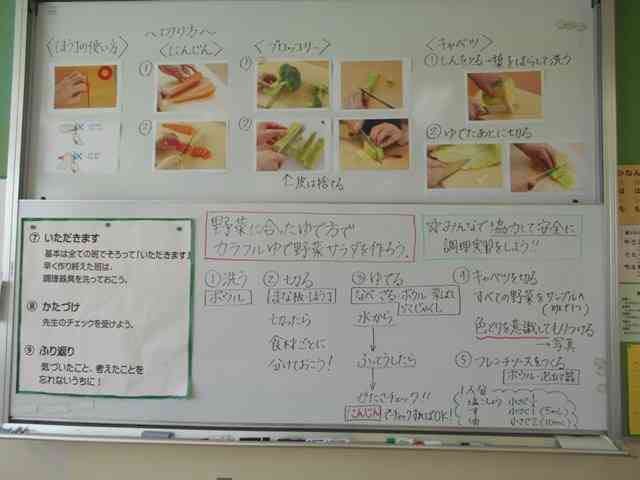 〜切り方〜
〈ほう丁の使い方〉
〈にんじん〉
〈ブロッコリー〉
〈キャベツ〉
①
②
①
②
①しんをとる→葉をばらして洗う
②ゆでたあとに切る
↑皮は捨てる
野菜に合ったゆで方で
カラフルゆで野菜サラダを作ろう。
☆みんなで協力して安全に
調理実習をしよう!!
⑦ いただきます
基本は全ての班でそろって「いただきます」
早く作り終えた班は、
調理器具を洗っておこう。
⑧ かたづけ
先生のチェックを受けよう。
⑨ ふり返り
気づいたこと、考えたことを
忘れないうちに！
①洗う
ボウル
②切る
まな板・ほう丁
切ったら
食材ごとに
分けておこう!
③ゆでる
なべ ざる ボウル 菜ばし
水から
ふっとうしたら
かたさチェック!!
にんじんでチェックすればOK!
④キャベツを切る
すべての野菜をサンプルへ
色どりを意識してもりつける
→写真
⑤フレンチソースをつくる
1人分
塩こしょう 小さじ
す 小さじ1 (5mL)
油 小さじ2 (10mL)